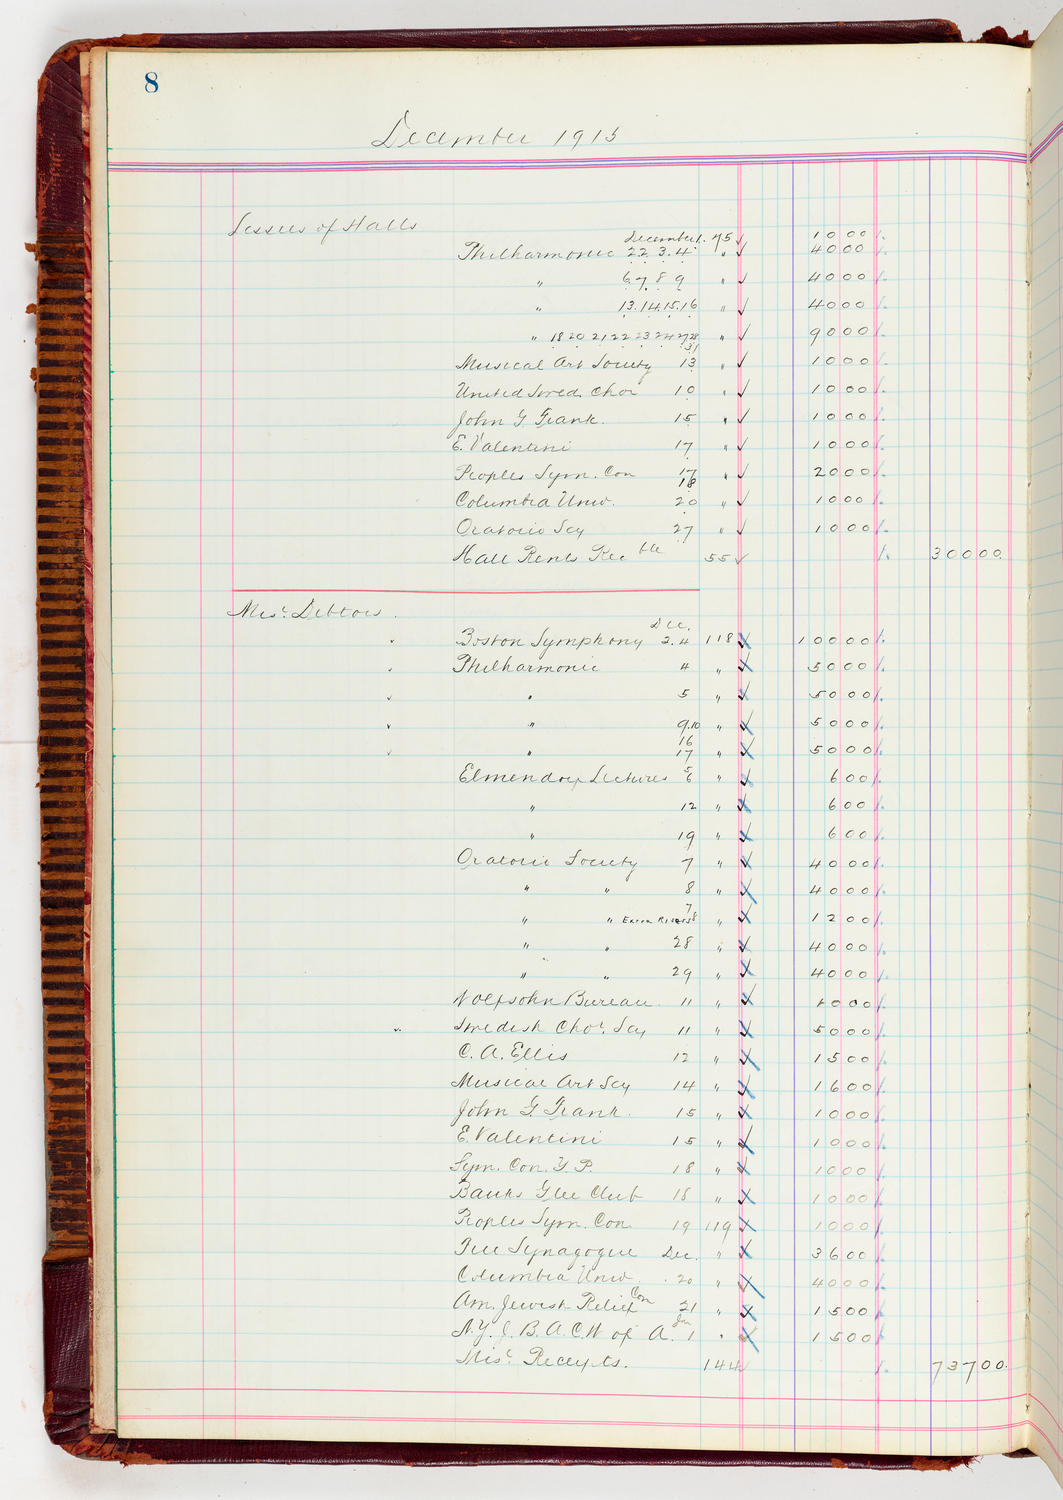 8
December 1915
Lessees of Halls
December 1. 75 ✓ 10 00
Philharmonic 2 2 3. 4 " ✓ 40 00
" 6 7 8 9 " ✓ 40 00
" 13. 14. 15. 16 " ✓ 40 00
" 18 20 21 22 23 24 27 28 31 " ✓ 90 00
Musical Art Society 13 " ✓ 10 00
United Swed. Chor 10 " ✓ 10 00
John G Frank. 15 " ✓ 10 00
E. Valentini 17 " ✓ 10 00
Peoples Sym. Con 17 18 " ✓ 20 00
Columbia Univ. 20 " ✓ 10 00
Oratorio Scy 27 " ✓ 10 00
Hall Rents Rec ble 55 ✓ 300 00
Misc. Debtors.
Dec.
Boston Symphony 2. 4 118 100 00
Philharmonic 4 " 50 00
" 5 " 50 00
" 9. 10 " 50 00
" 16 17 " 50 00
Elmendorf Lectures 5 6 " 6 00
" 12 " 6 00
" 19 " 6 00
Oratorio Society 7 " 40 00
" " 8 " 40 00
" " Extra Risers 7 8 " 12 00
" " 28 " 40 00
" " 29 " 40 00
Wolfsohn Bureau. 11 " 10 00
Swedish Chor. Scy 11 " 50 00
C. A. Ellis 12 " 15 00
Musical Art Scy 14 " 16 00
John G Frank. 15 " 10 00
E. Valentini 15 " 10 00
Sym. Con. Y. P. 18 " 10 00
Banks Glee Club 18 " 10 00
Peoples Sym. Con. 19 119 10 00
Free Synagogue Dec. " 36 00
Columbia Univ. 20 " 40 00
Am. Jewish Relief Con 21 " 15 00
N. Y. J. B. A. C. W of A. Jan 1 " 15 00
Misc. Receipts. 144 737 00